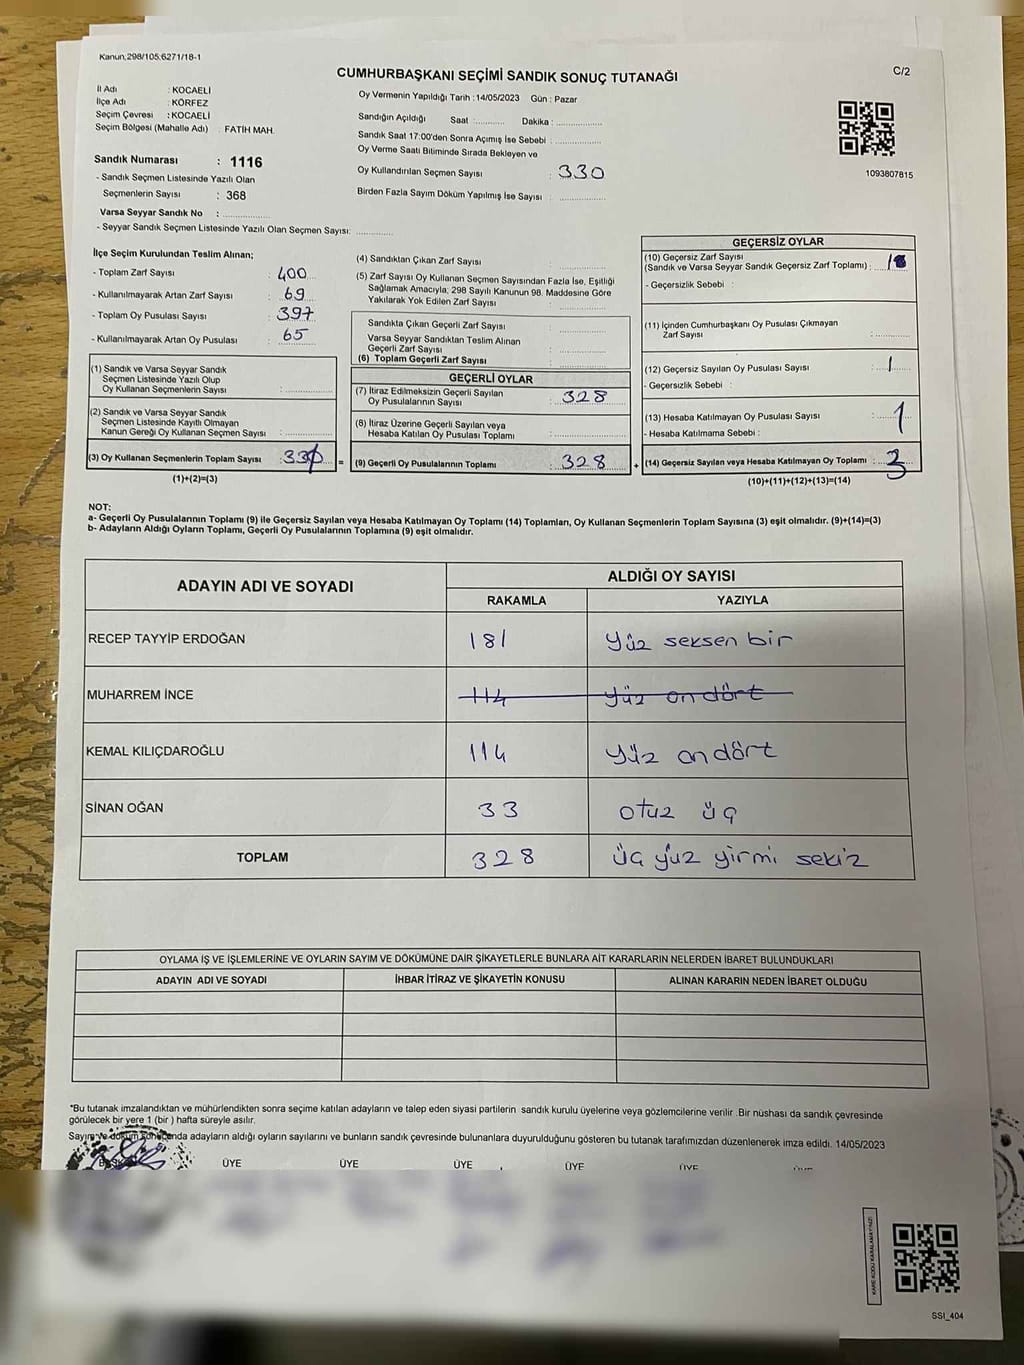 Kanun;298/105;6271/18-1
CUMHURBAŞKANI SEÇİMİ SANDIK SONUÇ TUTANAĞI
C/2
İl Adı : KOCAELİ
İlçe Adı : KÖRFEZ
Seçim Çevresi : KOCAELİ
Seçim Bölgesi (Mahalle Adı) : FATİH MAH.
Sandık Numarası : 1116
- Sandık Seçmen Listesinde Yazılı Olan
Seçmenlerin Sayısı : 368
Varsa Seyyar Sandık No :
- Seyyar Sandık Seçmen Listesinde Yazılı Olan Seçmen Sayısı:
Oy Vermenin Yapıldığı Tarih : 14/05/2023 Gün : Pazar
Sandığın Açıldığı Saat : Dakika :
Sandık Saat 17:00'den Sonra Açımış İse Sebebi :
Oy Verme Saati Bitiminde Sırada Bekleyen ve
Oy Kullandırılan Seçmen Sayısı : 330
Birden Fazla Sayım Döküm Yapılmış İse Sayısı :
1093807815
İlçe Seçim Kurulundan Teslim Alınan;
- Toplam Zarf Sayısı : 400
- Kullanılmayarak Artan Zarf Sayısı : 69
- Toplam Oy Pusulası Sayısı : 397
- Kullanılmayarak Artan Oy Pusulası : 65
(1) Sandık ve Varsa Seyyar Sandık
Seçmen Listesinde Yazılı Olup
Oy Kullanan Seçmenlerin Sayısı :
(2) Sandık ve Varsa Seyyar Sandık
Seçmen Listesinde Kayıtlı Olmayan
Kanun Gereği Oy Kullanan Seçmen Sayısı :
(3) Oy Kullanan Seçmenlerin Toplam Sayısı :
(1)+(2)=(3)
=
(4) Sandıktan Çıkan Zarf Sayısı :
(5) Zarf Sayısı Oy Kullanan Seçmen Sayısından Fazla İse, Eşitliği
Sağlamak Amacıyla; 298 Sayılı Kanunun 98. Maddesine Göre
Yakılarak Yok Edilen Zarf Sayısı :
Sandıkta Çıkan Geçerli Zarf Sayısı :
Varsa Seyyar Sandıktan Teslim Alınan
Geçerli Zarf Sayısı :
(6) Toplam Geçerli Zarf Sayısı
GEÇERLİ OYLAR
(7) İtiraz Edilmeksizin Geçerli Sayılan
Oy Pusulalarının Sayısı : 328
(8) İtiraz Üzerine Geçerli Sayılan veya
Hesaba Katılan Oy Pusulası Toplamı :
(9) Geçerli Oy Pusulalarının Toplamı : 328
+
GEÇERSİZ OYLAR
(10) Geçersiz Zarf Sayısı
(Sandık ve Varsa Seyyar Sandık Geçersiz Zarf Toplamı) :
- Geçersizlik Sebebi :
(11) İçinden Cumhurbaşkanı Oy Pusulası Çıkmayan
Zarf Sayısı :
(12) Geçersiz Sayılan Oy Pusulası Sayısı : 1
- Geçersizlik Sebebi :
(13) Hesaba Katılmayan Oy Pusulası Sayısı : 1
- Hesaba Katılmama Sebebi :
(14) Geçersiz Sayılan veya Hesaba Katılmayan Oy Toplamı : 3
(10)+(11)+(12)+(13)=(14)
NOT:
a- Geçerli Oy Pusulalarının Toplamı (9) ile Geçersiz Sayılan veya Hesaba Katılmayan Oy Toplamı (14) Toplamları, Oy Kullanan Seçmenlerin Toplam Sayısına (3) eşit olmalıdır. (9)+(14)=(3)
b- Adayların Aldığı Oyların Toplamı, Geçerli Oy Pusulalarının Toplamına (9) eşit olmalıdır.
ADAYIN ADI VE SOYADI
ALDIĞI OY SAYISI
RAKAMLA YAZIYLA
RECEP TAYYİP ERDOĞAN 181 yüz seksen bir
MUHARREM İNCE 114 yüz on dört
KEMAL KILIÇDAROĞLU 114 yüz on dört
SİNAN OĞAN 33 otuz üç
TOPLAM 328 üç yüz yirmi sekiz
OYLAMA İŞ VE İŞLEMLERİNE VE OYLARIN SAYIM VE DÖKÜMÜNE DAİR ŞİKAYETLERLE BUNLARA AİT KARARLARIN NELERDEN İBARET BULUNDUKLARI
ADAYIN ADI VE SOYADI İHBAR İTİRAZ VE ŞİKAYETİN KONUSU ALINAN KARARIN NEDEN İBARET OLDUĞU
*Bu tutanak imzalandıktan ve mühürlendikten sonra seçime katılan adayların ve talep eden siyasi partilerin sandık kurulu üyelerine veya gözlemcilerine verilir .Bir nüshası da sandık çevresinde
görülecek bir yere 1 (bir ) hafta süreyle asılır.
Sayım ve döküm sonucunda adayların aldığı oyların sayılarını ve bunların sandık çevresinde bulunanlara duyurulduğunu gösteren bu tutanak tarafımızdan düzenlenerek imza edildi. 14/05/2023
BAŞKAN ÜYE ÜYE ÜYE ÜYE ÜYE
KARE KODU KARALAMAYINIZ!
SSI_404